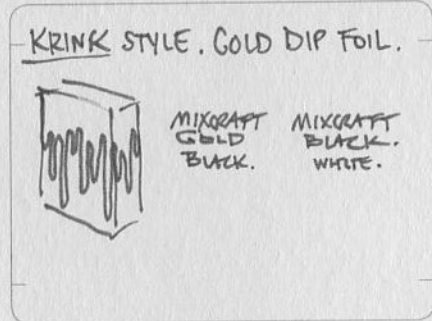 KRINK STYLE. GOLD DIP FOIL.
MIXCRAFT
GOLD
BLACK.
MIXCRAFT
BLACK.
WHITE.